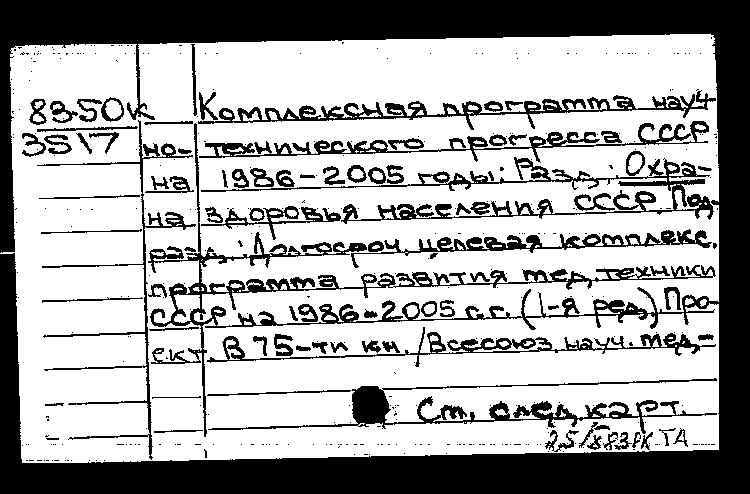 83-50К
3517
Комплексная программа науч-
но-технического прогресса СССР
на 1986-2005 годы: Разд.: Охра-
на здоровья населения СССР. Под-
разд.: Долгосроч. целевая комплекс.
программа развития мед. техники
СССР на 1986-2005 г.г. (1-я ред.). Про-
ект. В 75-ти кн. /Всесоюз. науч. мед.-
См. след. карт.
ТА